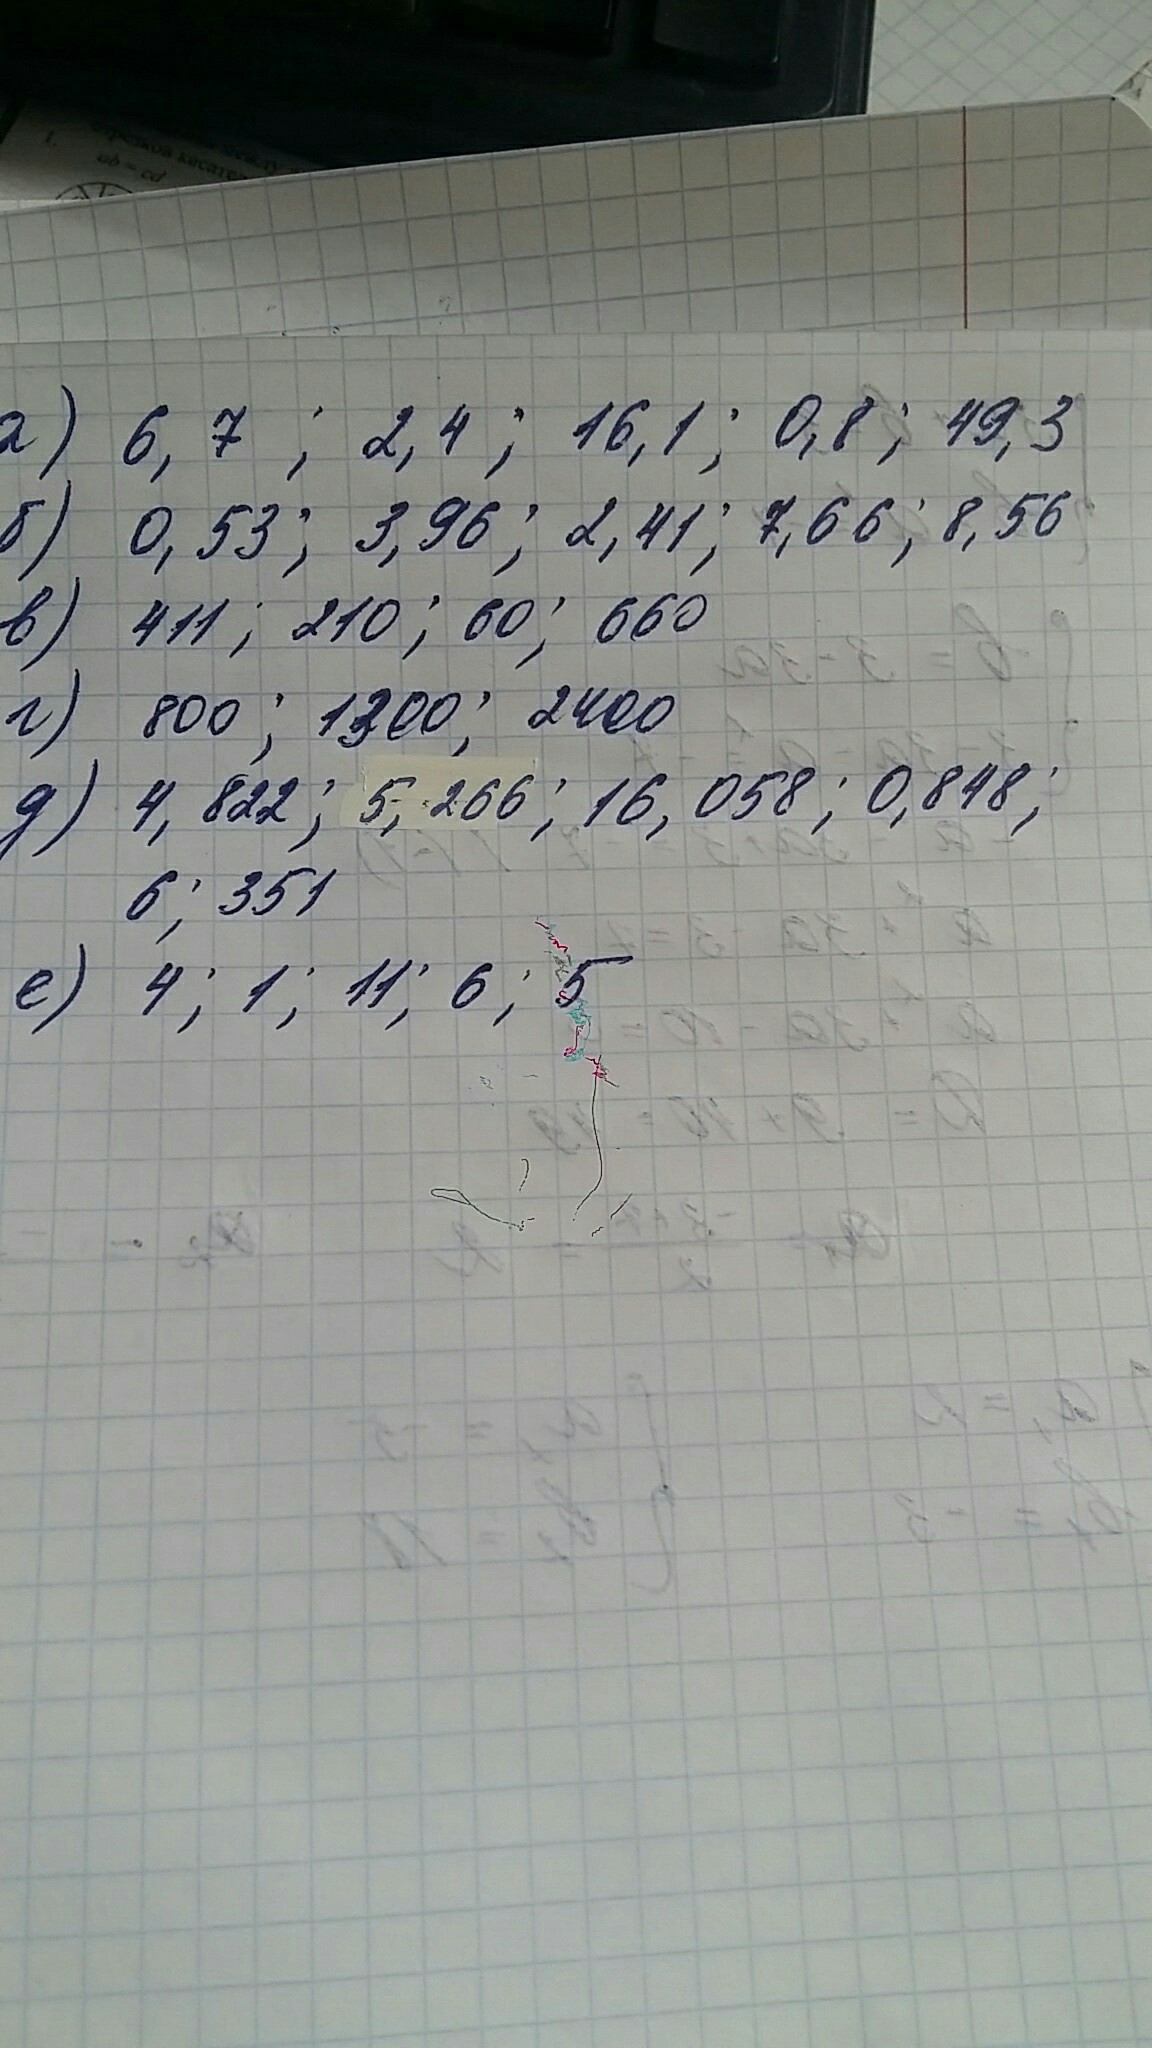 1.
ab = cd
а) 6,7 ; 2,4 ; 16,1 ; 0,8 ; 49,3
б) 0,53 ; 3,96 ; 2,41 ; 7,66 ; 8,56
в) 411 ; 210 ; 60 ; 660
г) 800 ; 1300 ; 2400
д) 4,822 ; 5,266 ; 16,058 ; 0,848 ;
6 ; 351
е) 4 ; 1 ; 11 ; 6 ; 5